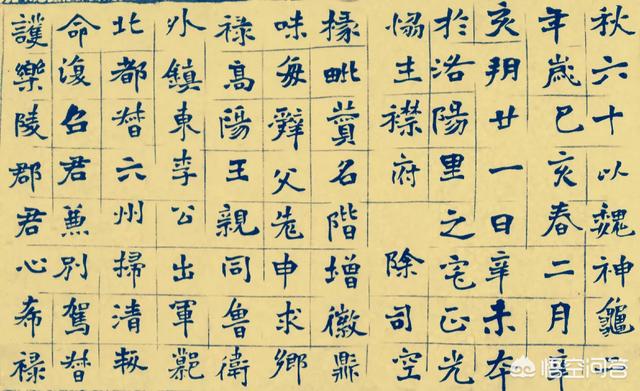 秋六十以魏神龜
年歲己亥春二月
亥朔廿一日辛未卒
於洛陽里之宅正光
主襟府 除司空
椽毗贊名階增徽鼎
味每辤父老申求鄉
祿高陽王親同魯衛
外鎮東李公出軍
北都督六州掃清叛
命復召君兼別駕督
護樂陵郡君心希祿
悟空问答